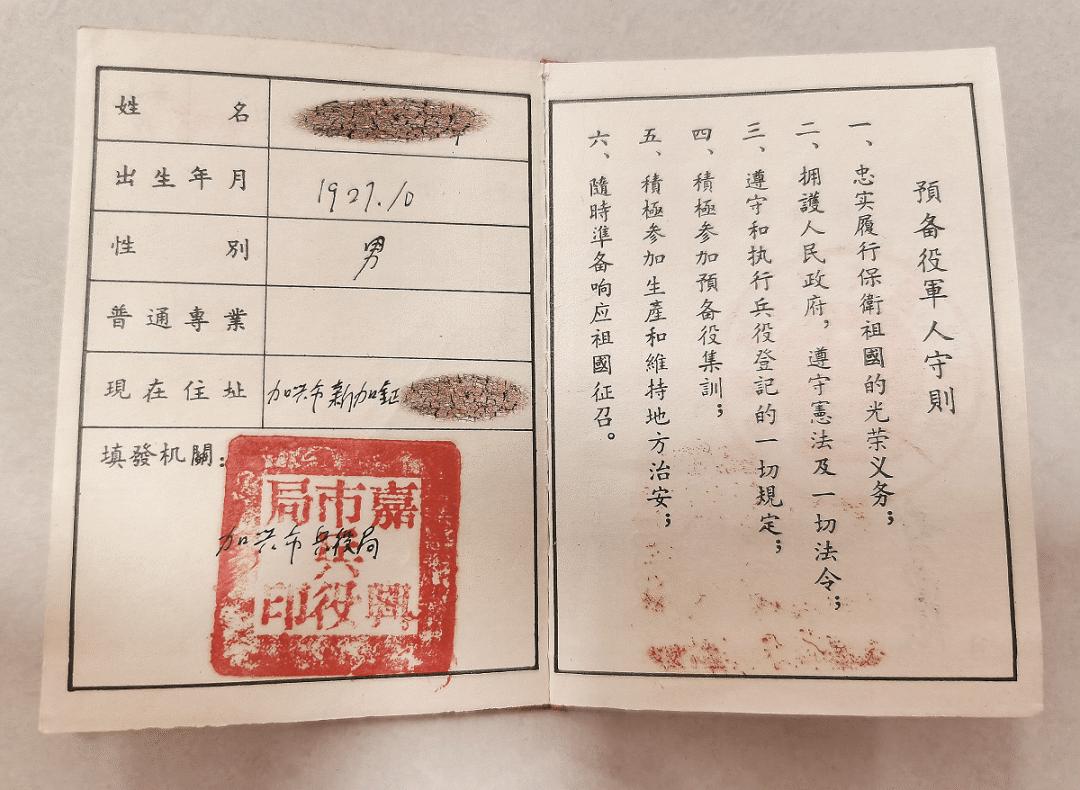 姓名
出生年月 1927.10
性別 男
普通專業
現在住址 加兴市新加
填發机關：
加兴市兵役局
嘉興
市兵役
局印
預备役軍人守則
一、忠实履行保衛祖國的光荣义务；
二、拥護人民政府，遵守憲法及一切法令；
三、遵守和执行兵役登記的一切規定；
四、積極参加預备役集訓；
五、積極参加生產和維持地方治安；
六、隨時準备响应祖國征召。